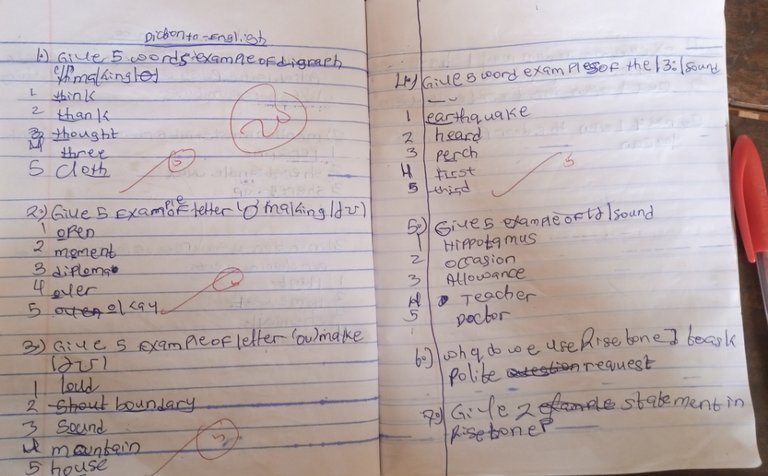 Diction to english
1.) Give 5 words example of digraph
"th" making /θ/
1 think
2 thank
3 thought
4 three
5 cloth
5
20
2.) Give 5 example of letter 'o' making /əʊ/
1 open
2 moment
3 diploma
4 over
5 okay
3.) Give 5 example of letter 'ou' make
/aʊ/
1 loud
2 boundary
3 Sound
4 mountain
5 house
5
4.) Give 5 word examples of the /3:/ sound
1 earthquake
2 heard
3 perch
4 first
5 third
5
5.) Give 5 example of /ə/ sound
1 Hippotamus
2 occasion
3 Allowance
4 Teacher
5 Doctor
6.) why do we use Rise tone] to ask
Polite request
7.) Give 2 statement in
Rise tone